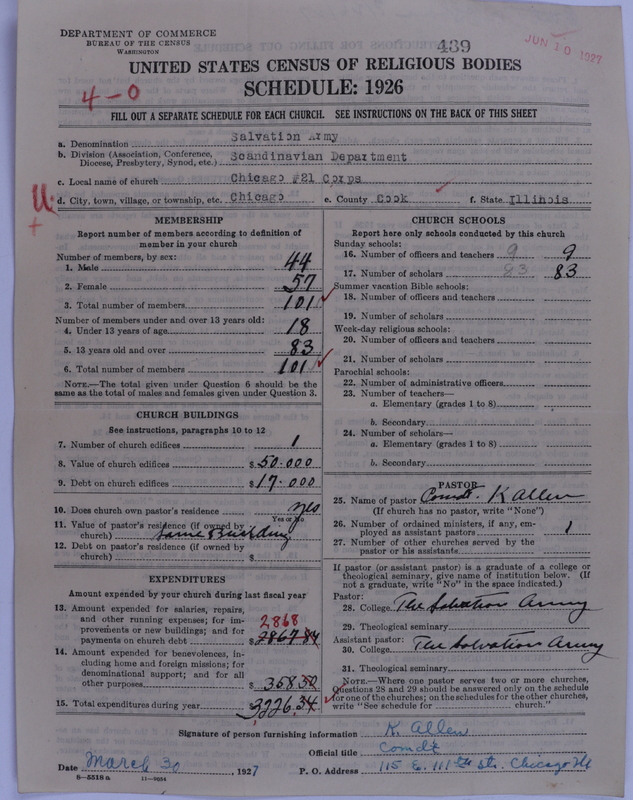 DEPARTMENT OF COMMERCE
BUREAU OF THE CENSUS
WASHINGTON
439
JUN 10 1927
UNITED STATES CENSUS OF RELIGIOUS BODIES
SCHEDULE: 1926
4-0
FILL OUT A SEPARATE SCHEDULE FOR EACH CHURCH. SEE INSTRUCTIONS ON THE BACK OF THIS SHEET
a. Denomination Salvation Army
b. Division (Association, Conference, Diocese, Presbytery, Synod, etc.) Scandinavian Department
c. Local name of church Chicago #21 Corps
d. City, town, village, or township, etc. Chicago e. County Cook f. State Illinois
MEMBERSHIP
Report number of members according to definition of
member in your church
Number of members, by sex:
1. Male 44
2. Female 57
3. Total number of members 101
Number of members under and over 13 years old:
4. Under 13 years of age 18
5. 13 years old and over 83
6. Total number of members 101
NOTE.—The total given under Question 6 should be
same as the total of males and females given under Question 3.
CHURCH BUILDINGS
See instructions, paragraphs 10 to 12
7. Number of church edifices 1
8. Value of church edifices $50.000
9. Debt on church edifices $17.000
10. Does church own pastor's residence yes
Yes or No
11. Value of pastor's residence (if owned by
church) Same Building
12. Debt on pastor's residence (if owned by
church) $
EXPENDITURES
Amount expended by your church during last fiscal year
13. Amount expended for salaries, repairs,
and other running expenses; for im- 2868
provements or new buildings; and for
payments on church debt $2867.84
14. Amount expended for benevolences, in-
cluding home and foreign missions; for
denominational support; and for all
other purposes $358.50
15. Total expenditures during year $3226.34
CHURCH SCHOOLS
Report here only schools conducted by this church
Sunday schools:
16. Number of officers and teachers 9 9
17. Number of scholars 83 83
Summer vacation Bible schools:
18. Number of officers and teachers
19. Number of scholars
Week-day religious schools:
20. Number of officers and teachers
21. Number of scholars
Parochial schools:
22. Number of administrative officers
23. Number of teachers—
a. Elementary (grades 1 to 8)
b. Secondary
24. Number of scholars—
a. Elementary (grades 1 to 8)
b. Secondary
PASTOR
25. Name of pastor Comdt. K Allen
(If church has no pastor, write "None")
26. Number of ordained ministers, if any, em-
ployed as assistant pastors 1
27. Number of other churches served by the
pastor or his assistants
If pastor (or assistant pastor) is a graduate of a college or
theological seminary, give name of institution below. (If
not a graduate, write "No" in the space indicated.)
Pastor:
28. College The Salvation Army
29. Theological seminary
Assistant pastor:
30. College The Salvation Army
31. Theological seminary
NOTE.—Where one pastor serves two or more churches,
Questions 28 and 29 should be answered only on the schedule
for one of the churches; on the schedules for the other churches,
write "See schedule for church."
Signature of person furnishing information K. Allen
Official title Comdt
Date March 30, 1927 P. O. Address 115 E. 111th Str. Chicago Ill
8—5518a 11—9034